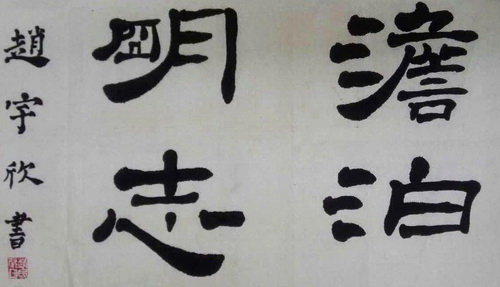 澹泊
明志
趙宇欣書